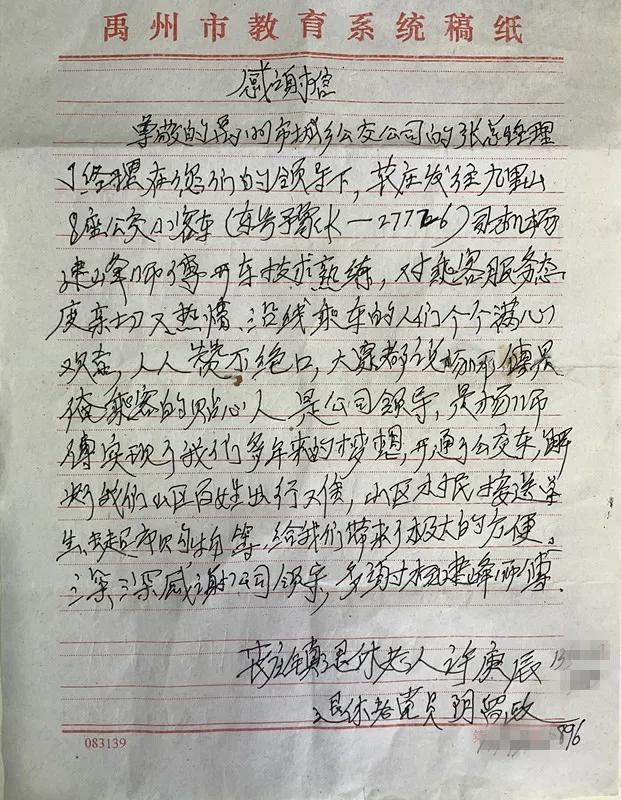 禹州市教育系统稿纸
感谢信
尊敬的禹州市城乡公交公司的张总经理
经理在您们的领导下，苌庄发往九里山
8座公交小客车（车号予豫K—27726）司机杨
建峰师傅开车技术熟练，对乘客服务态
度亲切又热情，沿线乘车的人们个个满心
欢喜，人人赞不绝口，大家都说杨师傅是
俺乘客的贴心人 是公司领导，是杨师
傅实现了我们多年来的梦想，开通了公交车，解
决了我们山区百姓出行不便，山区村民接送学
生，去赶市购物等 给我们带来了极大的方便。
深深感谢公司领导，多谢杨建峰师傅。
苌庄镇退休老人许庚辰 13
退休老党员 896
083139